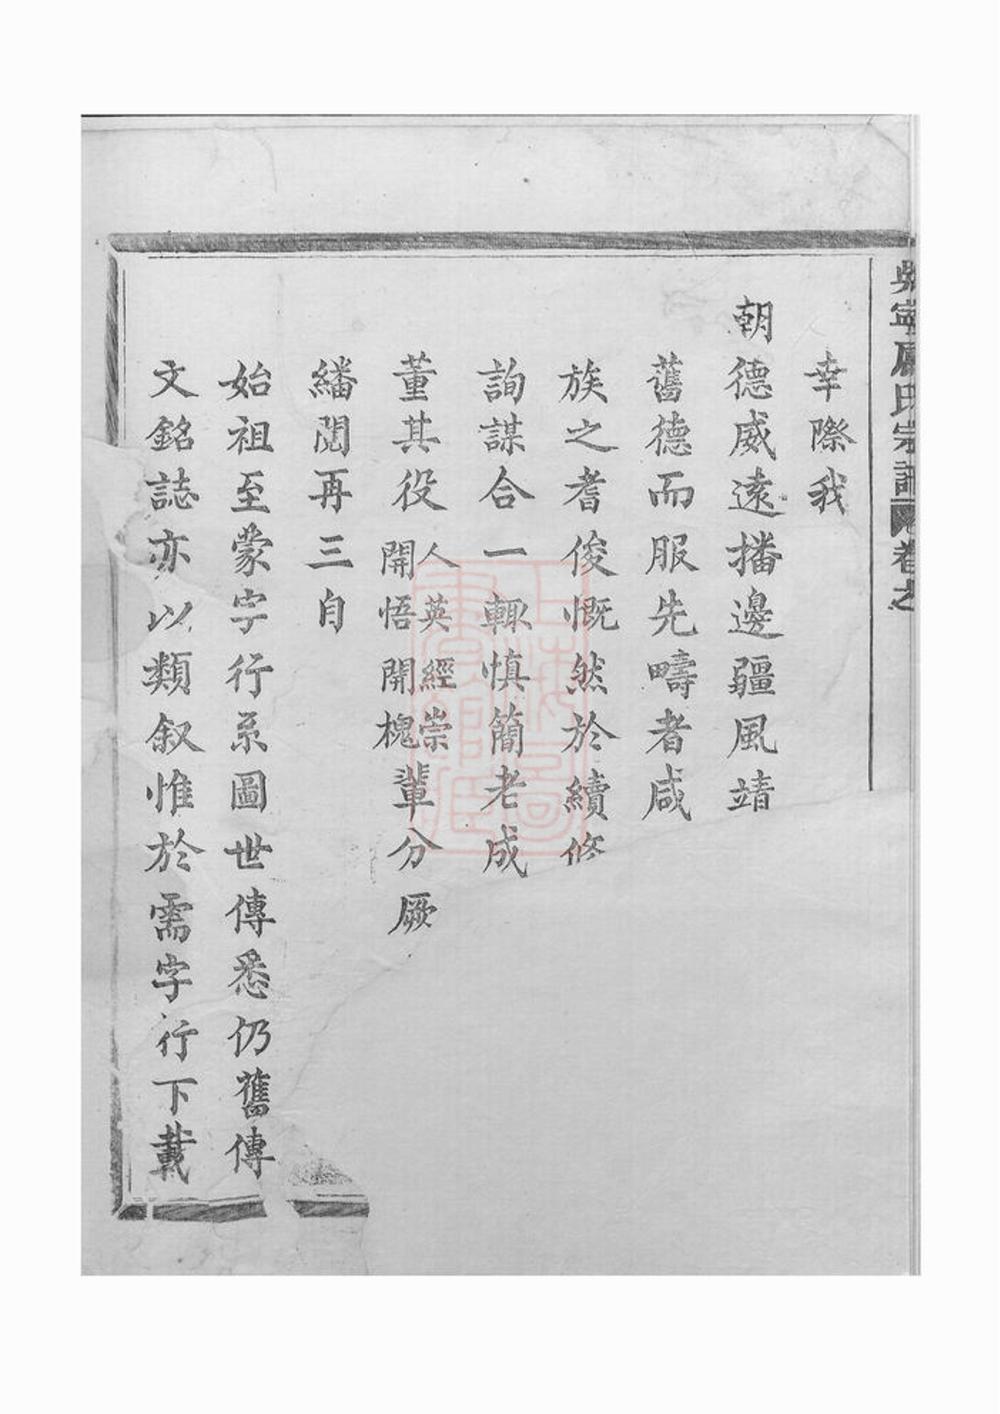 吳寧盧氏宗譜 卷之
幸際我
朝德威遠播邊疆風靖
舊德而服先疇者咸
族之耆俊慨然於續修
詢謀合一輙慎簡老成
董其役人英經崇開悟開槐輩分厥
繙閱再三自
始祖至蒙字行系圖世傳悉仍舊傳
文銘誌亦以類叙惟於需字行下載